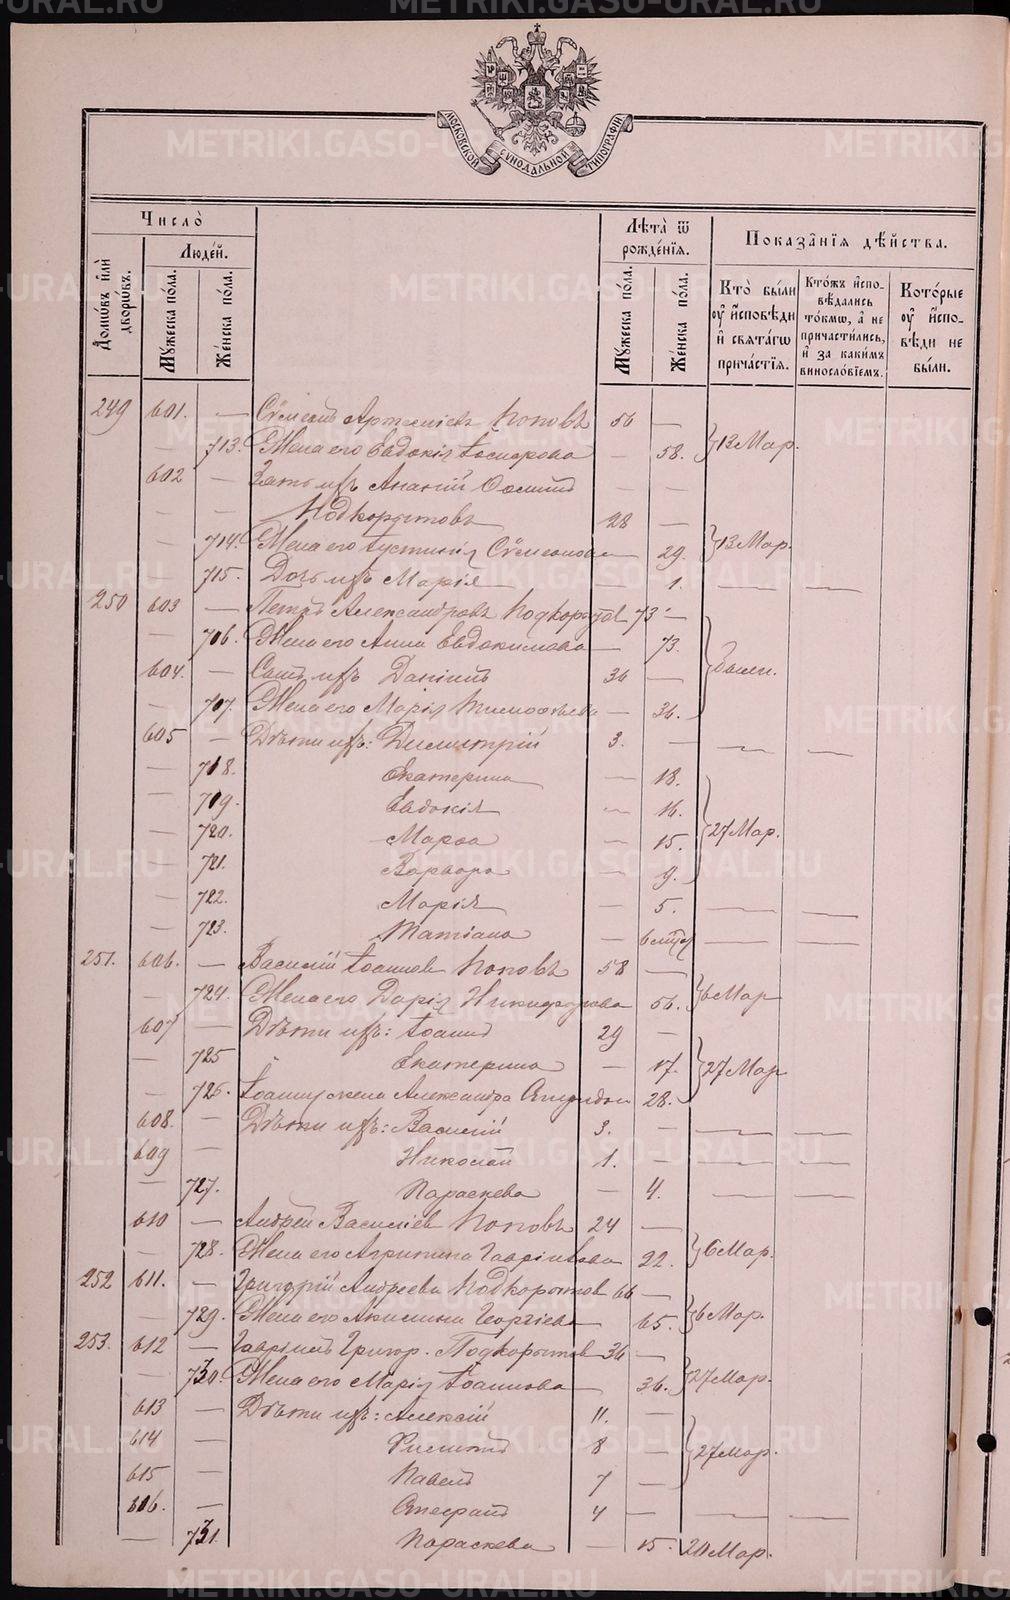 МОСКОВСКОЙ СѴНОДАЛЬНОЙ ТИПОГРАФІИ
Число̀
Домѡвъ и҆лѝ дворѡвъ.
Люде́й.
Мꙋ́жеска по́ла.
Же́нска по́ла.
Лѣ́та ѿ рожде́нїѧ.
Мꙋ́жеска по́ла.
Же́нска по́ла.
Показа̑нїѧ дѣ́йства.
Кто̀ бы́ли ᲂу҆ и҆сповѣ́ди и҆ свѧта́гѡ прича́стїѧ.
Кто́жъ и҆спо-вѣ́дались то́кмѡ, а҆ не причасти́лись, и҆ за каки́мъ винословїемъ.
Кото́рые ᲂу҆ и҆спо-вѣ́ди не бы́ли.
249 601. — Сѵмеонъ Артеміевъ Поповъ 56 —
713. Жена его Евдокія — 58. 13 Мар.
602 — Зять ихъ Ананій — —
Подкорытовъ 28 —
714. Жена его Іустинія Сѵмеонова 29. 13 Мар.
715. Дочь ихъ Марія — 1. — —
250 603 — Петръ Александровъ Подкорытов 73 —
706. Жена его Анна Евдокимова — 73.
604. — Сынъ ихъ Даніилъ 36 — были.
— 707. Жена его Марія Тимофѣева — 36.
605 — Дѣти ихъ: Димитрій 3. — — —
— 718. Екатерина — 18.
— 719. Евдокія — 16.
— 720. Марѳа — 15. 27 Мар.
— 721. Варвара — 9.
— 722. Марія — 5. — —
— 723. Татіана — 6 мцъ — —
251. 606. — Василій Іоаннов Поповъ 58 —
— 724. Жена его Дарія Никифорова 56. 6 Мар
607 — Дѣти ихъ: Іоаннъ 29 —
— 725 " Екатерина — 17. 27 Мар
— 726. Іоанну жена Александра 28.
608. — Дѣти ихъ: Василій 3. — — —
609 — Николай 1. — — —
— 727. Параскева — 4. — —
610 — Андрей Василіев Поповъ 24 —
— 728. Жена его Агрипина Гавріилова 22. 6 Мар.
252 611. — Григорій Андреева Подкорытов 66 —
— 729. Жена его Акилина Георгіева 65. 6 Мар.
253. 612 — Гавріилъ Григор. Подкорытов 36 —
— 730. Жена его Марія Іоаннова — 36. 27 Мар.
613 — Дѣти ихъ: Алексій 11. —
614 — Филиппъ 8 — 27 Мар.
615 — Павелъ 7 —
616. — 4 — — —
— 731. Параскева — 15 20 Мар.
METRIKI.GASO-URAL.RU